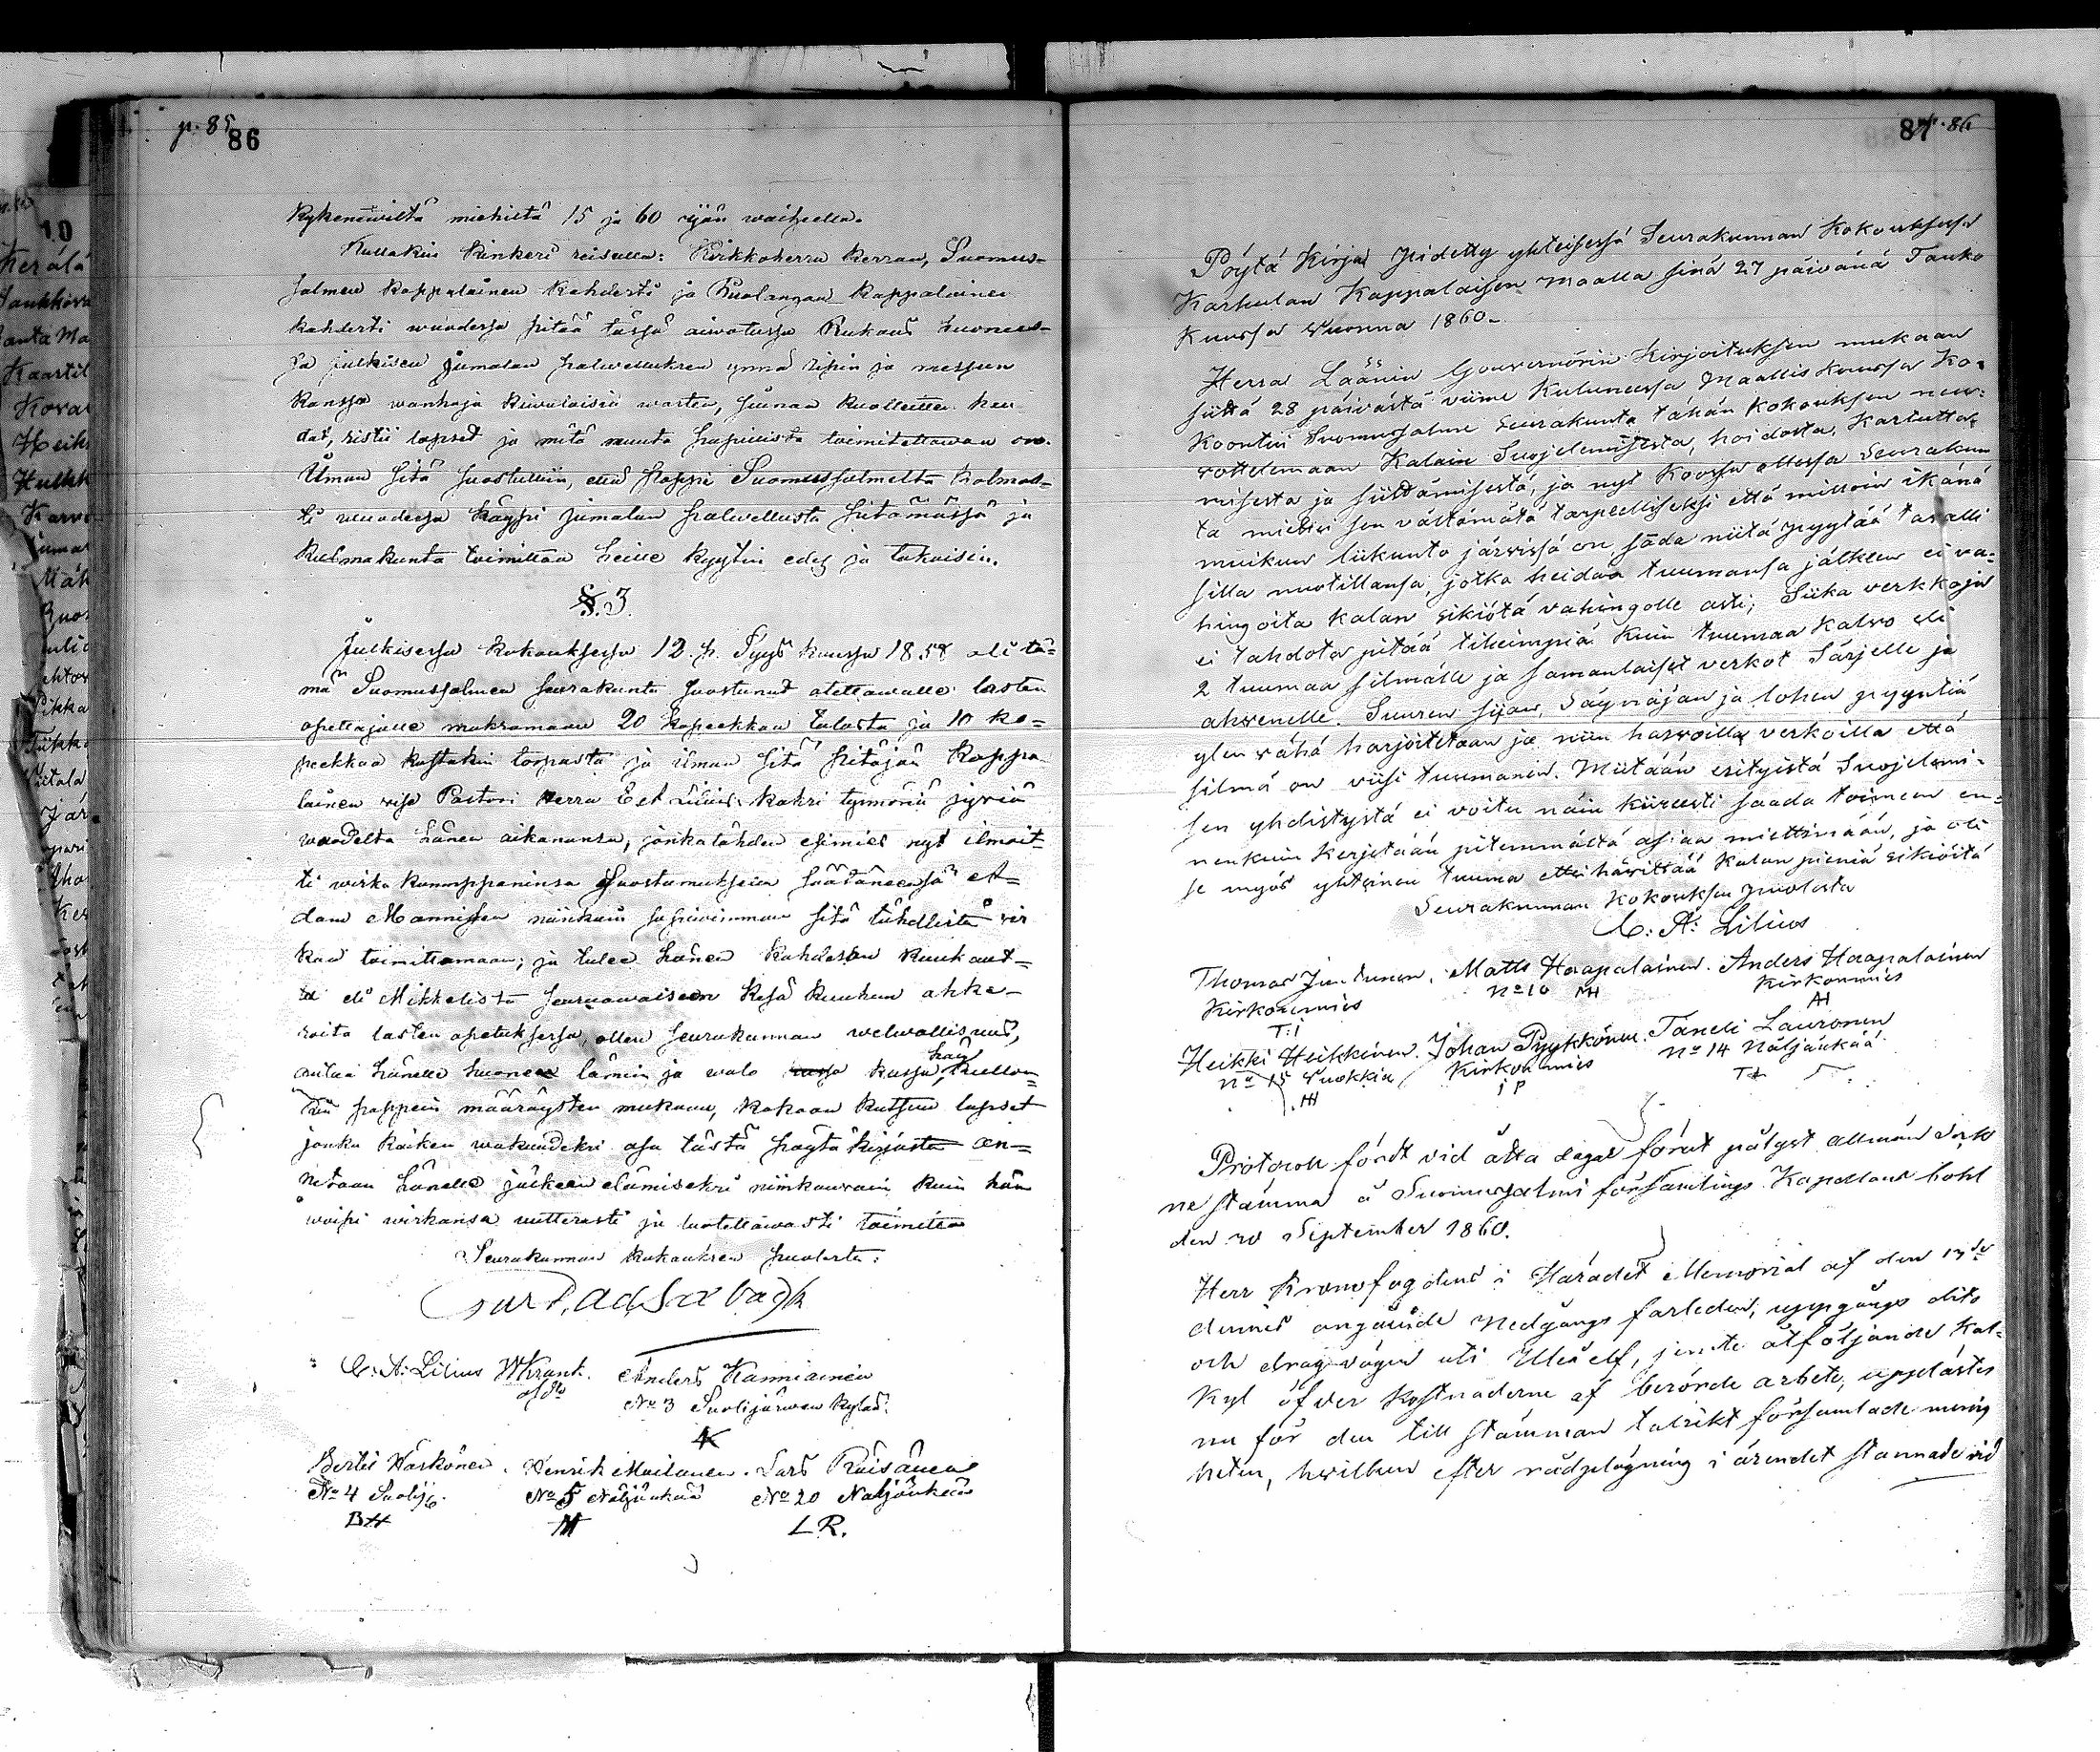 p. 85
86
Kykenewiltä miehiltä 15 ja 60 ijän waiheella.
Kullakin Kinkeri reisulla: Kirkkoherra kerran, Suomus-
salmen kappalainen kahdesti ja Puolangan kappalainen
kahdesti wuodessa pitää tässä aiwotussa Rukous huonees-
sa julkisen jumalan palwelluksen ynnä ripin ja messun
kanssa wanhoja kiwulaisia warten, siunaa kuolleitten hau
dat, ristii lapset ja mitä muuta papillista toimitettawaa on.
Ilman sitä suostuttiin, että Pappi Suomussalmelta kolmas-
ti wuodessa käypi jumalan palwellusta pitämässä ja
kulmakunta toimittaa heille kyytin edes ja takaisin.
§. 3.
Julkisessa kokouksessa 12. p. Syys kuussa 1858 oli tä-
mä Suomussalmen seurakunta suostunut otettawalle lasten
opettajalle maksamaan 20 kopeekkaa talosta ja 10 ko-
peekkaa kustakin torpasta ja ilman sitä pitäjän kappa
lainen wise Pastori Herra Lilius kaksi tynnöriä jywiä
wuodelta hänen aikanansa, jonkatähden esimies nyt ilmoit-
ti wirka kumppaninsa suostumuksen säätäneensä A-
dam Mannisen niinkuin sopiwimman sitä tähdellistä wir
kaa toimittamaan; ja tulee hänen kahdeksan kuukaut-
ta eli Mikkelistä seuraawaiseen kesä kuuhun ahke-
roita lasten opetuksessa, ollen seurakunnan welwollisuus,
antaa hänelle huoneen lämmin ja walo kussa hän, kullon-
kin pappein määräysten mukaan, kokoon kutsuu lapset
jonka kaiken wakuudeksi osa tästä pöytäkirjasta an-
netaan hänelle jälkeen elämiseksi niinkauwain kuin hän
woipi wirkansa uutterasti ja luotettawasti toimittaa
Seurakunnan kokouksen puolesta:
C. A. Lilius WKrank. Anders Hanniainen
No 3 Suolijärwen kylää.
Bertil Härkönen. Henrik Moilanen. Lars Räisänen
No 4 Suolij. No 5 Näljänkää No 20 Näljänkää
BH M LR.
87 p. 86
Pöytä Kirja pidetty yhteisessä Seurakunnan Kokouksessa
Karhulan Kappalaisen Maalla sinä 27 päivänä Touko
Kuussa Vuonna 1860.
Herra Läänin Gouvernörin Kirjoituksen mukaan
siittä 28 päivästä viime Kuluneessa Maallis Kuussa Ko-
koontui Suomussalmen Seurakunta tähän Kokouksen neu-
vottelemaan Kalain Suojelemisesta, hoidosta, Kartutta-
misesta ja siittämisestä, ja nyt Koossa ollessa Seurakun
ta mietti sen välttämätä tarpeelliseksi että milloin ikänä
muikun liikunto järvissä on, saada niitä pyytää tavalli
silla nuotillansa, jotka heidän tuumansa jälkeen ei va-
hingoita kalan sikiötä vahingolle asti; Siika verkkoja
ei tahdota pitää tiheimpiä Kuin tuumaa kalvo eli
2 tuumaa silmälle ja samanlaiset verkot Särjelle ja
ahvenelle. Suuren siian, Säynäjän ja lohen pyyntiä
ylen vähä harjoitetaan ja niin harvoilla verkoilla että
silmä on viisi tuumanen. Mitään erityistä Suojelemi-
sen yhdistystä ei voitu näin kiireesti saada toimeen en-
nenkuin kerjetään pitemmältä asiaa miettimään, ja oli
se myös yhteinen tuuma ettei hävittää kalan pieniä sikiöitä
Seurakunnan Kokouksen puolesta
C. A. Lilius
Thomas Juntunen. Matts Haapalainen. Anders Haapalainen
Kirkonmies No 10 MH Kirkonmies
T:J AH
Heikki Heikkinen. Johan Pyykkönen. Taneli Lauronen
No 15 Vuokkia Kirkonmies No 14 Näljänkää
HH JP TL
Protocoll fördt vid åtta dagar förut pålyst allmän Sock
nestämma å Suomussalmi församlings Kapellans bohl
den 20 September 1860.
Herr Kronofogdens i Häradet Memorial af den 13de
dennes angående Nedgångs farleden, uppgångs dito
och dragvägen uti Uleå elf, jemte åtföljande Kal-
kyl öfver Kostnaderne af berörde arbete, upplästes
nu för den till Stämman talrikt församlade menig
heten, hwilken efter rådplägning i ärendet stannade vid